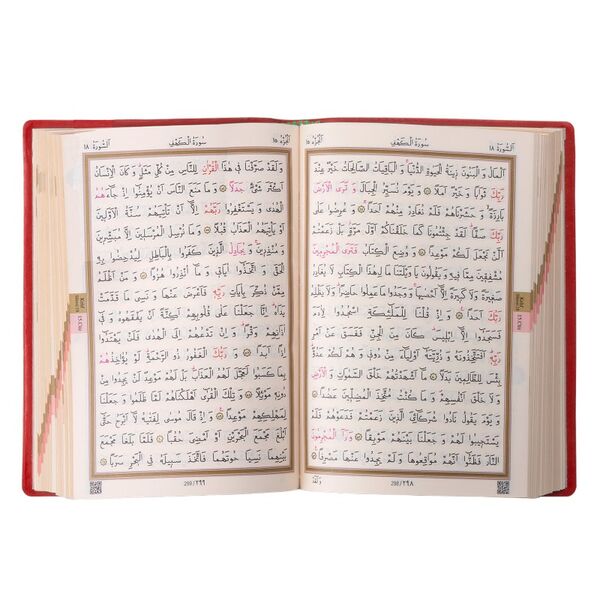 اَلسُّورَةُ ١٨
سُورَةُ الْكَهْفِ
اَلْجُزْءُ ١٥
اَلْمَالُ وَ الْبَنُونَ زِينَةُ الْحَيٰوةِ الدُّنْيَا وَ الْبَاقِيَاتُ الصَّالِحَاتُ خَيْرٌ عِنْدَ
رَبِّكَ ثَوَابًا وَ خَيْرٌ اَمَلًا وَ يَوْمَ نُسَيِّرُ الْجِبَالَ وَ تَرَى الْاَرْضَ
بَارِزَةً وَ حَشَرْنَاهُمْ فَلَمْ نُغَادِرْ مِنْهُمْ اَحَدًا وَ عُرِضُوا عَلٰى
رَبِّكَ صَفًّا لَقَدْ جِئْتُمُونَا كَمَا خَلَقْنَاكُمْ اَوَّلَ مَرَّةٍ بَلْ زَعَمْتُمْ
اَلَّنْ نَجْعَلَ لَكُمْ مَوْعِدًا وَ وُضِعَ الْكِتَابُ فَتَرَى الْمُجْرِمِينَ
مُشْفِقِينَ مِمَّا فِيهِ وَ يَقُولُونَ يَا وَيْلَتَنَا مَالِ هٰذَا الْكِتَابِ لَا يُغَادِرُ
صَغِيرَةً وَ لَا كَبِيرَةً اِلَّٓا اَحْصٰيهَا وَ وَجَدُوا مَا عَمِلُوا حَاضِرًا وَ لَا يَظْلِمُ
رَبُّكَ اَحَدًا وَ اِذْ قُلْنَا لِلْمَلٰٓئِكَةِ اسْجُدُوا لِاٰدَمَ
فَسَجَدُٓوا اِلَّٓا اِبْلِيسَ كَانَ مِنَ الْجِنِّ فَفَسَقَ عَنْ اَمْرِ
رَبِّهِ اَفَتَتَّخِذُونَهُ وَ ذُرِّيَّتَهُٓ اَوْلِيَٓاءَ مِنْ دُونِي وَ هُمْ لَكُمْ عَدُوٌّ
بِئْسَ لِلظَّالِمِينَ بَدَلًا مَٓا اَشْهَدْتُهُمْ خَلْقَ السَّمٰوَاتِ وَ الْاَرْضِ
وَ لَا خَلْقَ اَنْفُسِهِمْ وَ مَا كُنْتُ مُتَّخِذَ الْمُضِلِّينَ عَضُدًا
وَ يَوْمَ يَقُولُ نَادُوا شُرَكَٓائِيَ الَّذِينَ زَعَمْتُمْ فَدَعَوْهُمْ فَلَمْ
يَسْتَجِيبُوا لَهُمْ وَ جَعَلْنَا بَيْنَهُمْ مَوْبِقًا وَ رَاَ الْمُجْرِمُونَ
النَّارَ فَظَنُّٓوا اَنَّهُمْ مُوَاقِعُوهَا وَ لَمْ يَجِدُوا عَنْهَا مَصْرِفًا
298/٢٩٨
وَ لَقَدْ
اَلسُّورَةُ ١٨
سُورَةُ الْكَهْفِ
اَلْجُزْءُ ١٥
وَ لَقَدْ صَرَّفْنَا فِي هٰذَا الْقُرْاٰنِ لِلنَّاسِ مِنْ كُلِّ مَثَلٍ وَ كَانَ الْاِنْسَانُ
اَكْثَرَ شَيْءٍ جَدَلًا وَ مَا مَنَعَ النَّاسَ اَنْ يُؤْمِنُٓوا اِذْ جَٓاءَهُمُ
الْهُدٰى وَ يَسْتَغْفِرُوا رَبَّهُمْ اِلَّٓا اَنْ تَأْتِيَهُمْ سُنَّةُ الْاَوَّلِينَ
اَوْ يَأْتِيَهُمُ الْعَذَابُ قُبُلًا وَ مَا نُرْسِلُ الْمُرْسَلِينَ اِلَّا مُبَشِّرِينَ
وَ مُنْذِرِينَ وَ يُجَادِلُ الَّذِينَ كَفَرُوا بِالْبَاطِلِ لِيُدْحِضُوا بِهِ
الْحَقَّ وَ اتَّخَذُٓوا اٰيَاتِي وَ مَٓا اُنْذِرُوا هُزُوًا وَ مَنْ اَظْلَمُ
مِمَّنْ ذُكِّرَ بِاٰيَاتِ رَبِّهِ فَاَعْرَضَ عَنْهَا وَ نَسِيَ مَا قَدَّمَتْ
يَدَاهُ اِنَّا جَعَلْنَا عَلٰى قُلُوبِهِمْ اَكِنَّةً اَنْ يَفْقَهُوهُ وَ فِٓي
اٰذَانِهِمْ وَقْرًا وَ اِنْ تَدْعُهُمْ اِلَى الْهُدٰى فَلَنْ يَهْتَدُٓوا
اِذًا اَبَدًا وَ رَبُّكَ الْغَفُورُ ذُو الرَّحْمَةِ لَوْ يُؤَاخِذُهُمْ
بِمَا كَسَبُوا لَعَجَّلَ لَهُمُ الْعَذَابَ بَلْ لَهُمْ مَوْعِدٌ لَنْ يَجِدُوا مِنْ
دُونِهِ مَوْئِلًا وَ تِلْكَ الْقُرٰٓى اَهْلَكْنَاهُمْ لَمَّا ظَلَمُوا وَ جَعَلْنَا
لِمَهْلِكِهِمْ مَوْعِدًا وَ اِذْ قَالَ مُوسٰى لِفَتٰيهُ لَٓا اَبْرَحُ حَتّٰٓى
اَبْلُغَ مَجْمَعَ الْبَحْرَيْنِ اَوْ اَمْضِيَ حُقُبًا فَلَمَّا بَلَغَا مَجْمَعَ
بَيْنِهِمَا نَسِيَا حُوتَهُمَا فَاتَّخَذَ سَبِيلَهُ فِي الْبَحْرِ سَرَبًا
299/٢٩٩
Kehf
15.Cüz
Kehf
15.Cüz